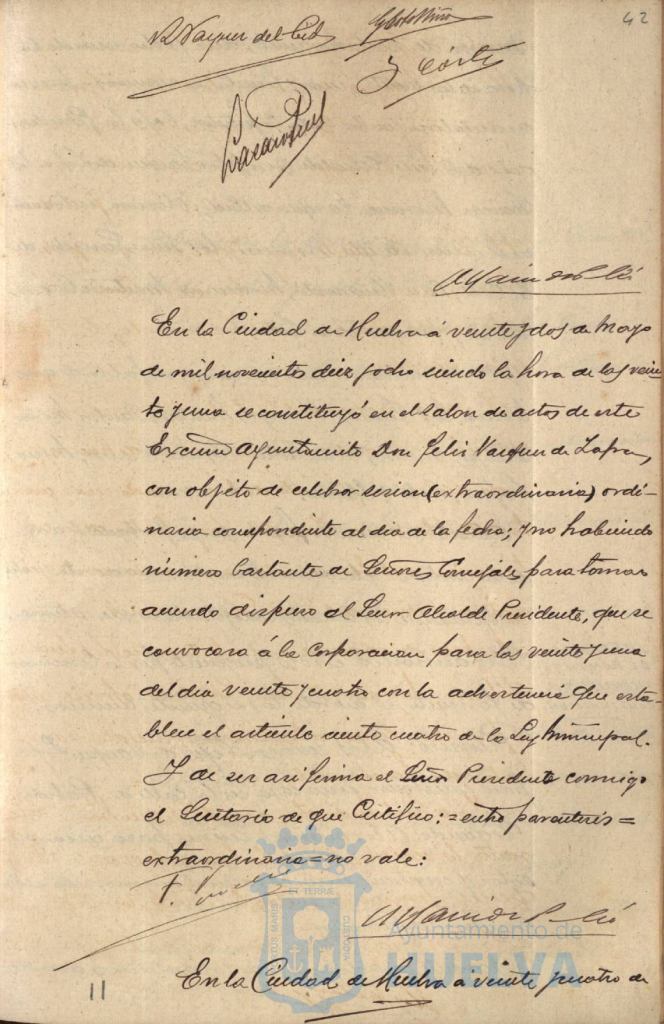 42
En la Ciudad de Huelva á veinte y dos de Mayo
de mil novecientos diez y ocho siendo la hora de las vein-
te y una se constituyó en el salon de actos de este
Excmo Ayuntamito Don Felix Vazquez de Zafra,
con objeto de celebrar sesion (extraordinaria) ordi-
naria correspondiente al dia de la fecha; y no habiendo
número bastante de Señores Concejales para tomar
acuerdo dispuso el Señor Alcalde Presidente, que se
convocara á la Corporacion para las veinte y una
del dia veinte y cuatro con la advertencia que esta-
blece el artículo ciento cuatro de la Ley Municipal.
Y de ser asi firma el Señor Presidente conmigo
el Secretario de que Certifico: = entre parentesis =
extraordinaria = no vale:
Ayuntamiento de
HUELVA
En la Ciudad de Huelva á veinte y cuatro de
11